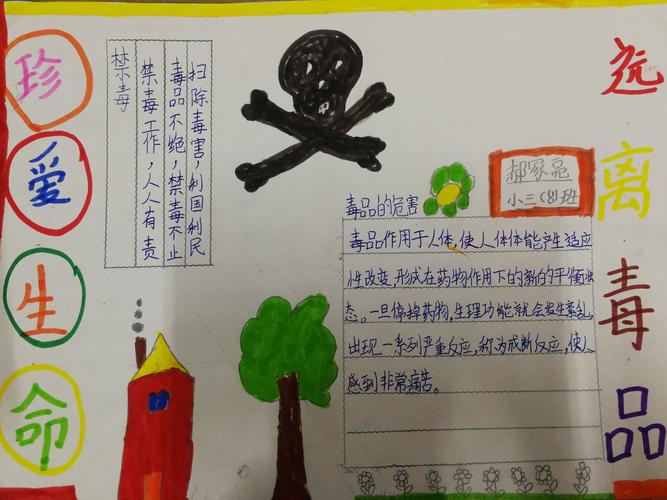 珍爱生命
禁毒
禁毒工作，人人有责
毒品不绝，禁毒不止
扫除毒害，利国利民
郝家亮
小三(8)班
毒品的危害
毒品作用于人体，使人体体能产生适应
性改变，形成在药物作用下的新的平衡状
态。一旦停掉药物，生理功能就会发生紊乱，
出现一系列严重反应，称为戒断反应，使人
感到非常痛苦。
远离毒品